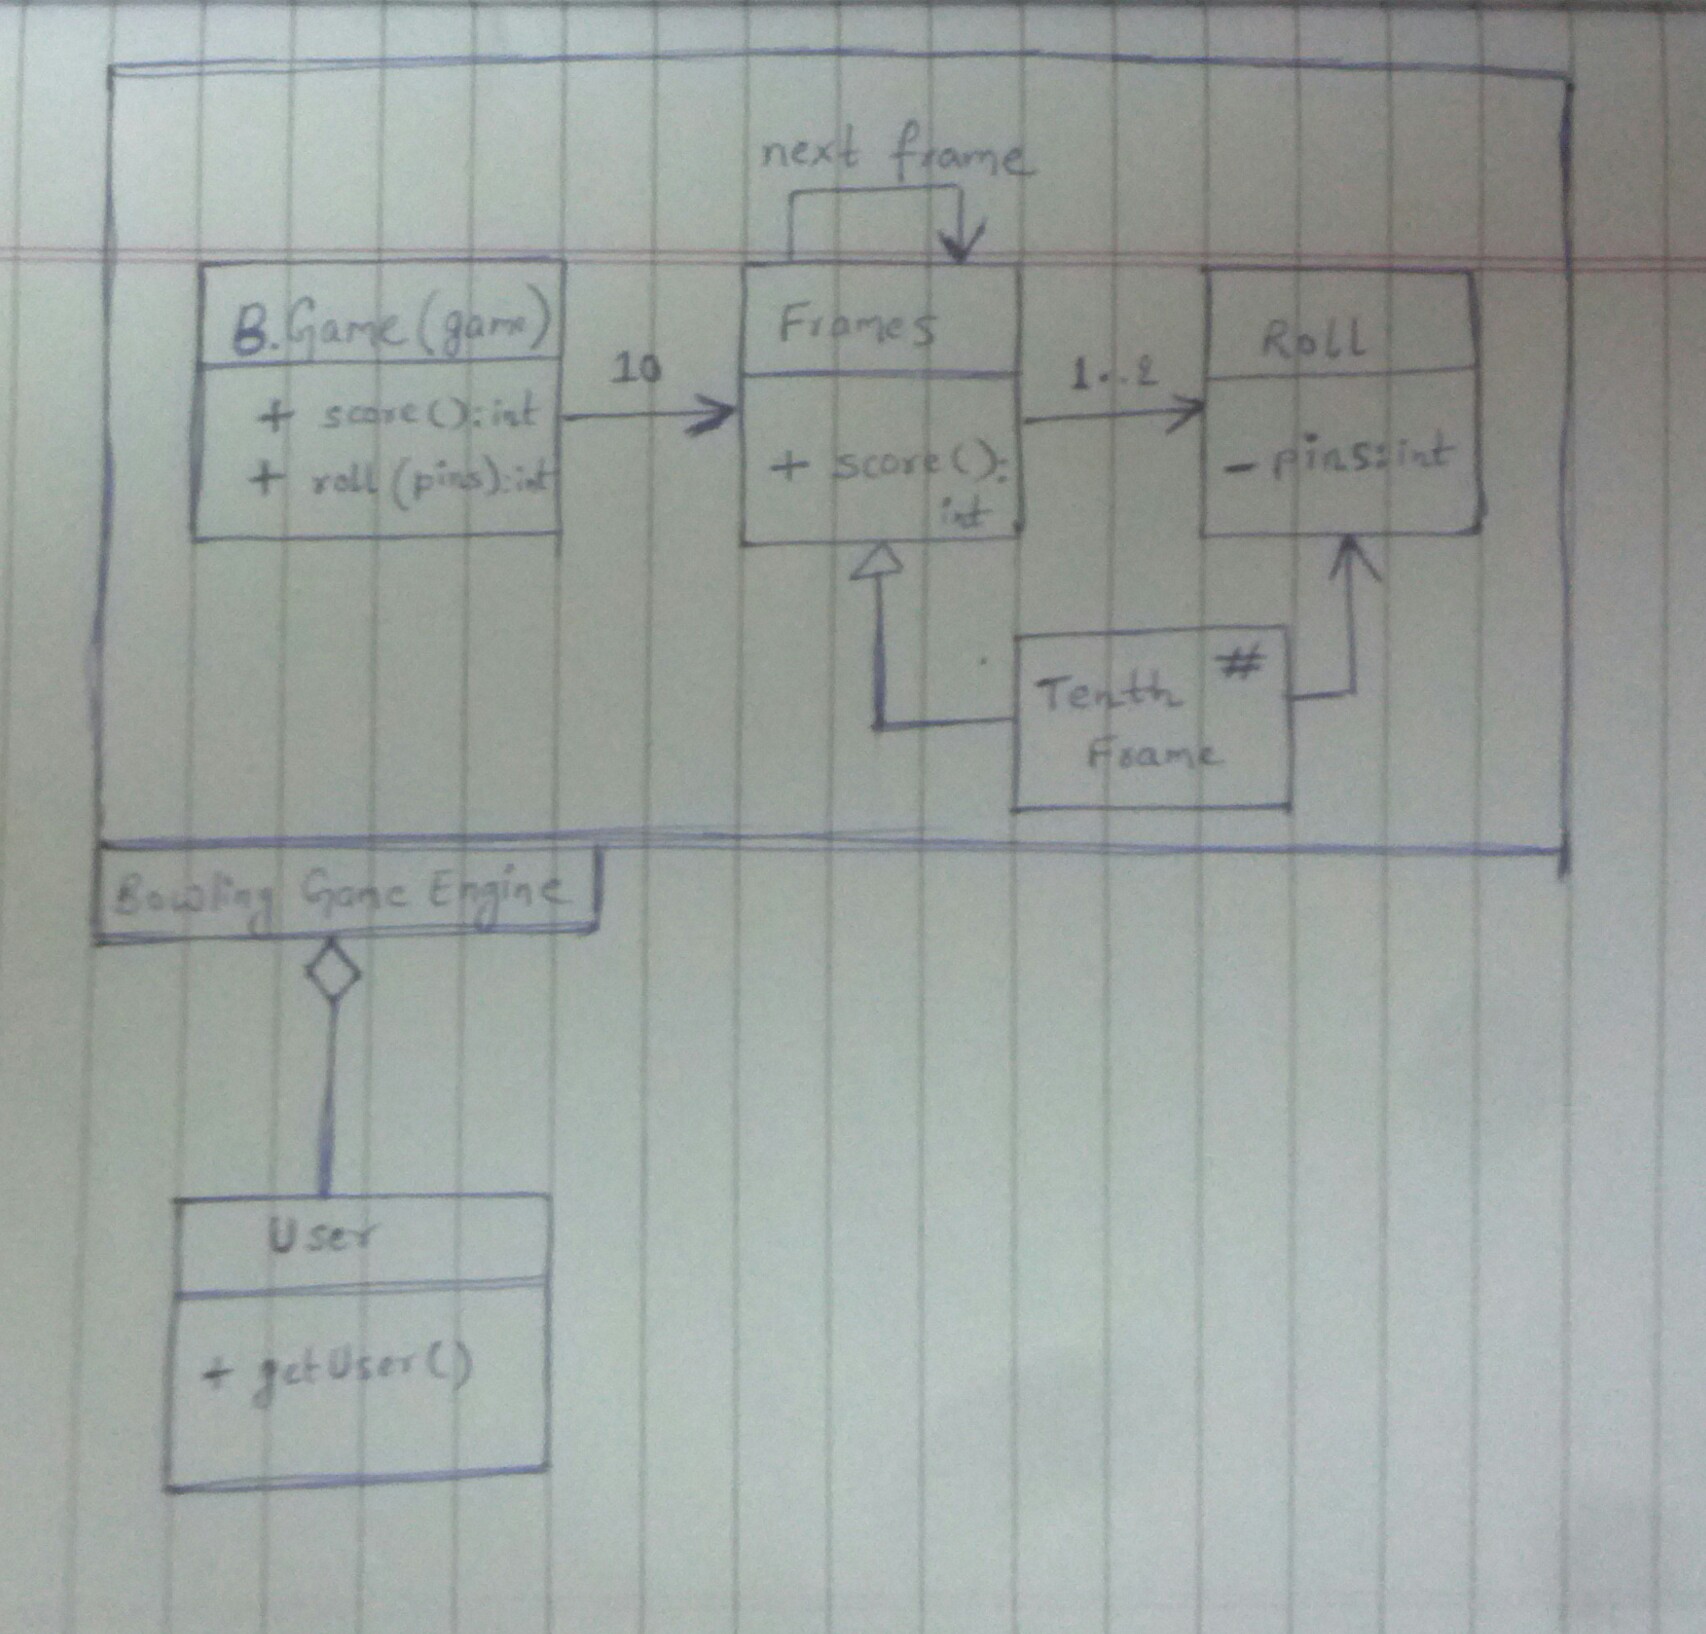 next frame
B.Game(game)
+ score():int
+ roll(pins):int
10
Frames
+ score():
int
1..2
Roll
- pins:int
Tenth #
Frame
Bowling Game Engine
User
+ getUser()